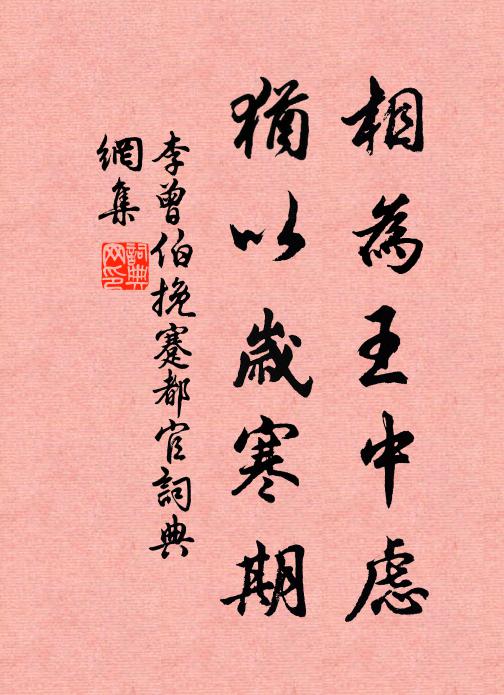 相為王中慮
猶以歲寒期
李曾伯挽蹇都官詞典
網集
詞典
网印